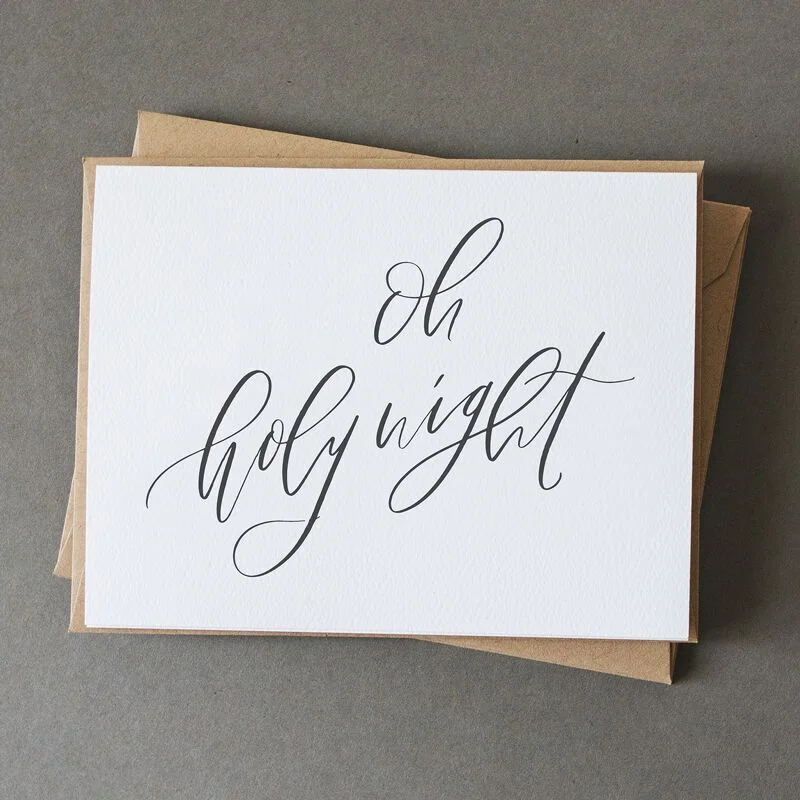 oh
holy night